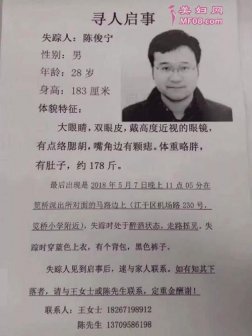 美妇网
MF08.com
寻人启事
失踪人：陈俊宁
性别：男
年龄：28 岁
身高：183 厘米
体貌特征：
大眼睛，双眼皮，戴高度近视的眼镜，
有点络腮胡，嘴角边有颗痣。体重略胖，
有肚子，约 178 斤。
最后出现是 2018 年 5 月 7 日晚上 11 点 05 分在
笕桥派出所对面的马路边上（江干区机场路 230 号，
笕桥小学附近），失踪时处于醉酒状态，走路摇晃。失
踪时穿蓝色上衣，有个背包，黑色裤子。
失踪人见到启事后，速与家人联系。如有知其下
落者，请与王女士或陈先生联系，定重金酬谢！
联系人：王女士 18267198912
陈先生 13709586198